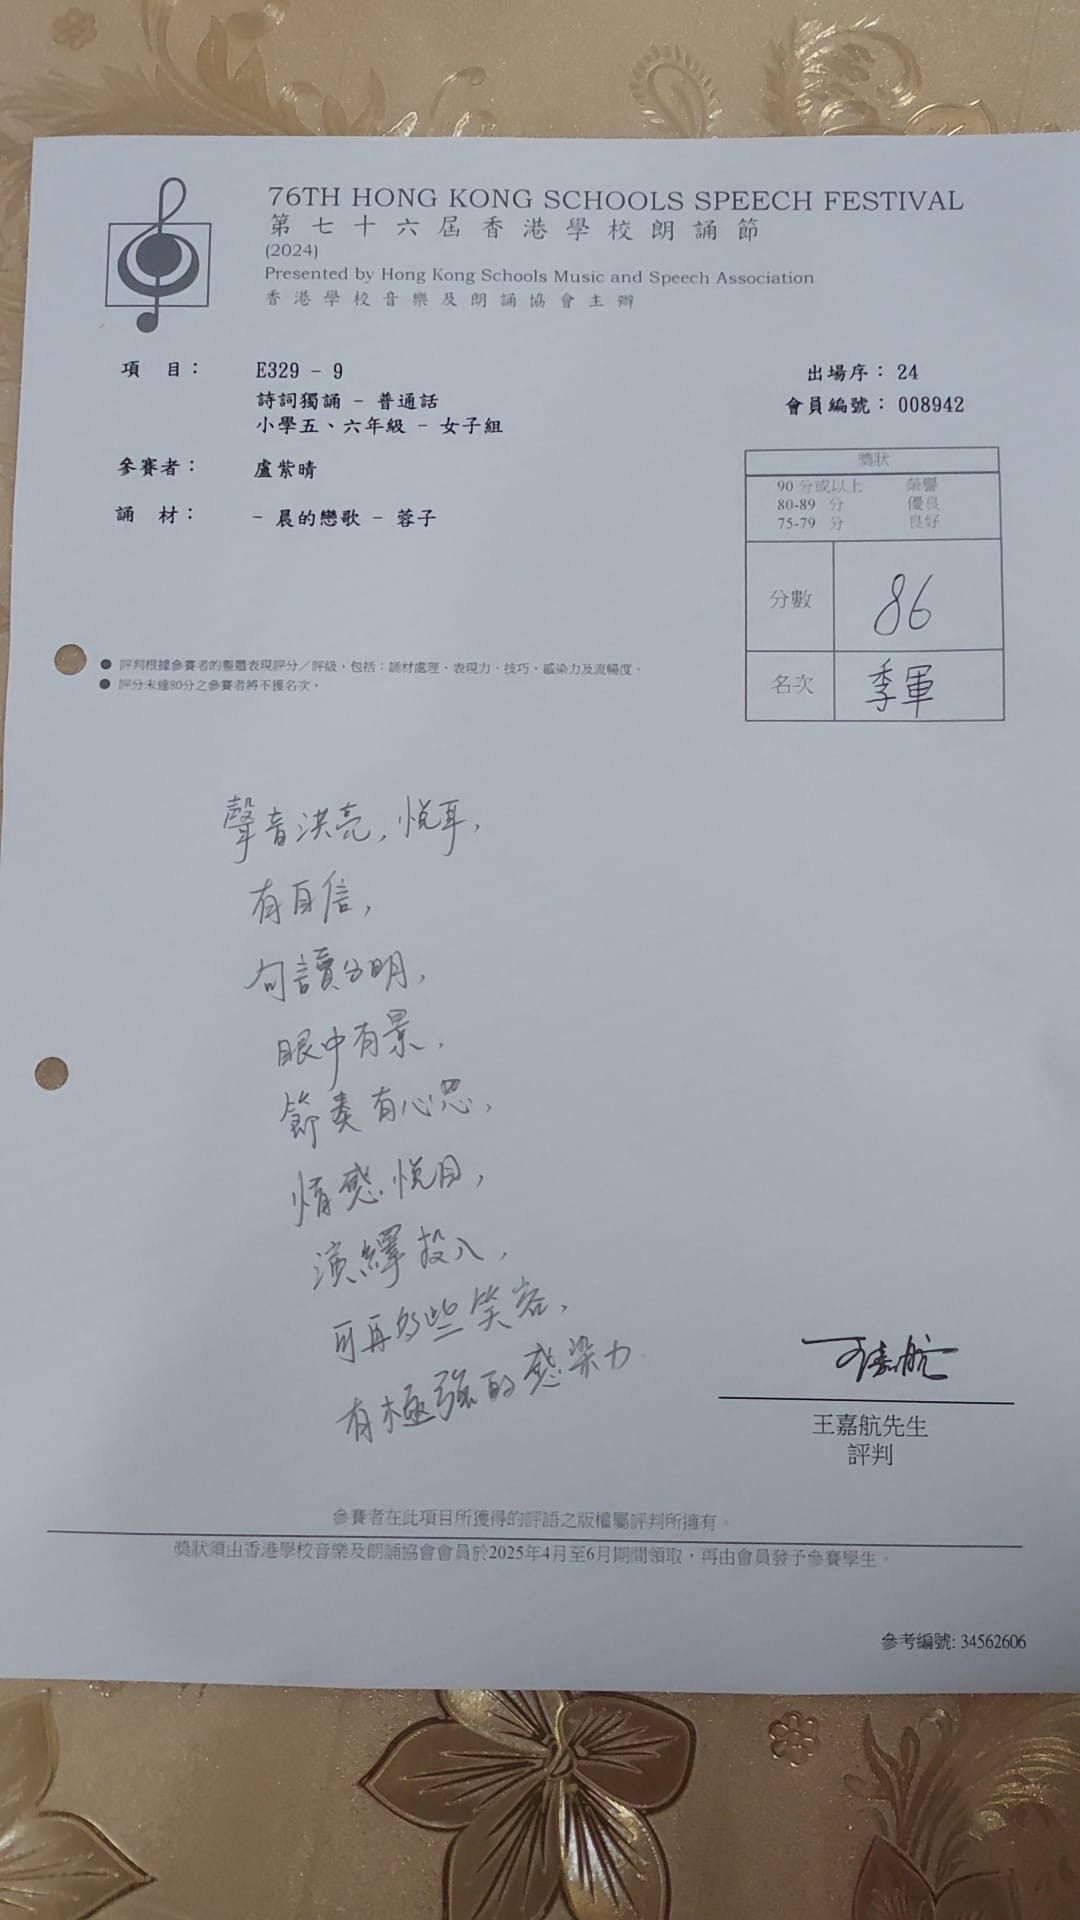 76TH HONG KONG SCHOOLS SPEECH FESTIVAL
第七十六屆香港學校朗誦節
(2024)
Presented by Hong Kong Schools Music and Speech Association
香港學校音樂及朗誦協會主辦
項 目： E329 - 9
詩詞獨誦 - 普通話
小學五、六年級 - 女子組
參賽者： 盧紫晴
誦 材： - 晨的戀歌 - 蓉子
出場序： 24
會員編號： 008942
獎狀
90 分或以上 榮譽
80-89 分 優良
75-79 分 良好
分數 86
名次 季軍
● 評判根據參賽者的整體表現評分／評級，包括：誦材處理、表現力、技巧、感染力及流暢度。
● 評分未達80分之參賽者將不獲名次。
聲音洪亮，悅耳，
有自信，
句讀分明，
眼中有景，
節奏有心思，
情感悅目，
演繹投入，
可再多些笑容，
有極強的感染力
王嘉航先生
評判
參賽者在此項目所獲得的評語之版權屬評判所擁有。
獎狀須由香港學校音樂及朗誦協會會員於2025年4月至6月期間領取，再由會員發予參賽學生。
參考編號: 34562606